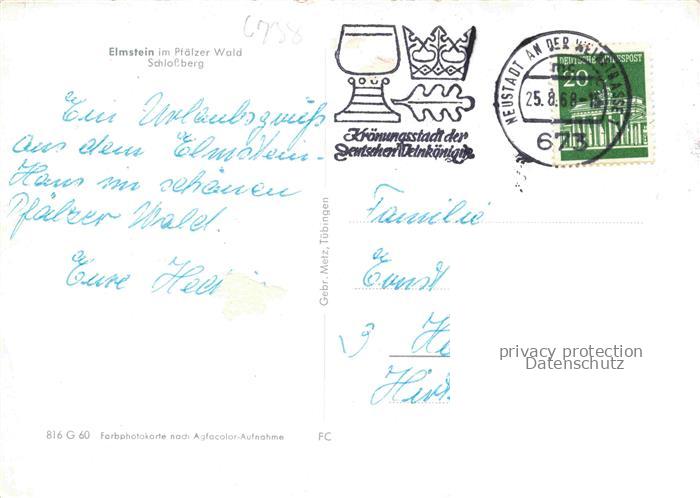 6738
Elmstein im Pfälzer Wald
Schloßberg
Ein Urlaubsgruß
aus dem Elmstein-
Haus im schönen
Pfälzer Wald.
Eure
Gebr. Metz, Tübingen
816 G 60 Farbphotokarte nach Agfacolor-Aufnahme FC
Krönungsstadt der
Deutschen Weinkönigin
NEUSTADT AN DER WEINSTRASSE
25.8.68
673
DEUTSCHE BUNDESPOST
20
Familie
Ernst
3
privacy protection
Datenschutz